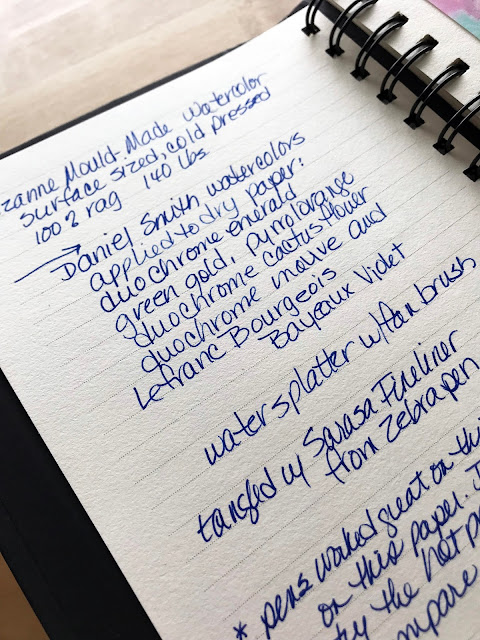 zanne Mould-Made Watercolor
surface sized, cold pressed
100% rag 140 lbs
Daniel Smith watercolors
applied to dry paper:
duochrome emerald
green gold, pyrrol orange
duochrome cactus flower
duochrome mauve and
Lefranc Bourgeois
Bayeaux Violet
water splatter w/fan brush
tangled w/ Sarasa Fineliner
from Zebra pen
* pens worked great on thi
on this paper. I
try the hot p
mpare